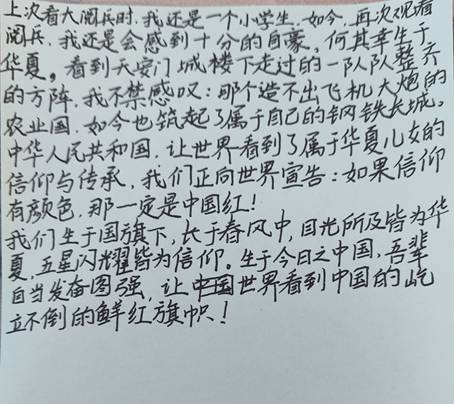 上次看大阅兵时，我还是一个小学生，如今，再次观看
阅兵，我还是会感到十分的自豪，何其幸生于
华夏。看到天安门城楼下走过的一队队整齐
的方阵，我不禁感叹：那个造不出飞机大炮的
农业国，如今也筑起了属于自己的钢铁长城。
中华人民共和国，让世界看到了属于华夏儿女的
信仰与传承，我们正向世界宣告：如果信仰
有颜色，那一定是中国红！
我们生于国旗下，长于春风中，目光所及皆为华
夏，五星闪光耀皆为信仰。生于今日之中国，吾辈
自当发奋图强，让中国世界看到中国的屹
立不倒的鲜红旗帜！